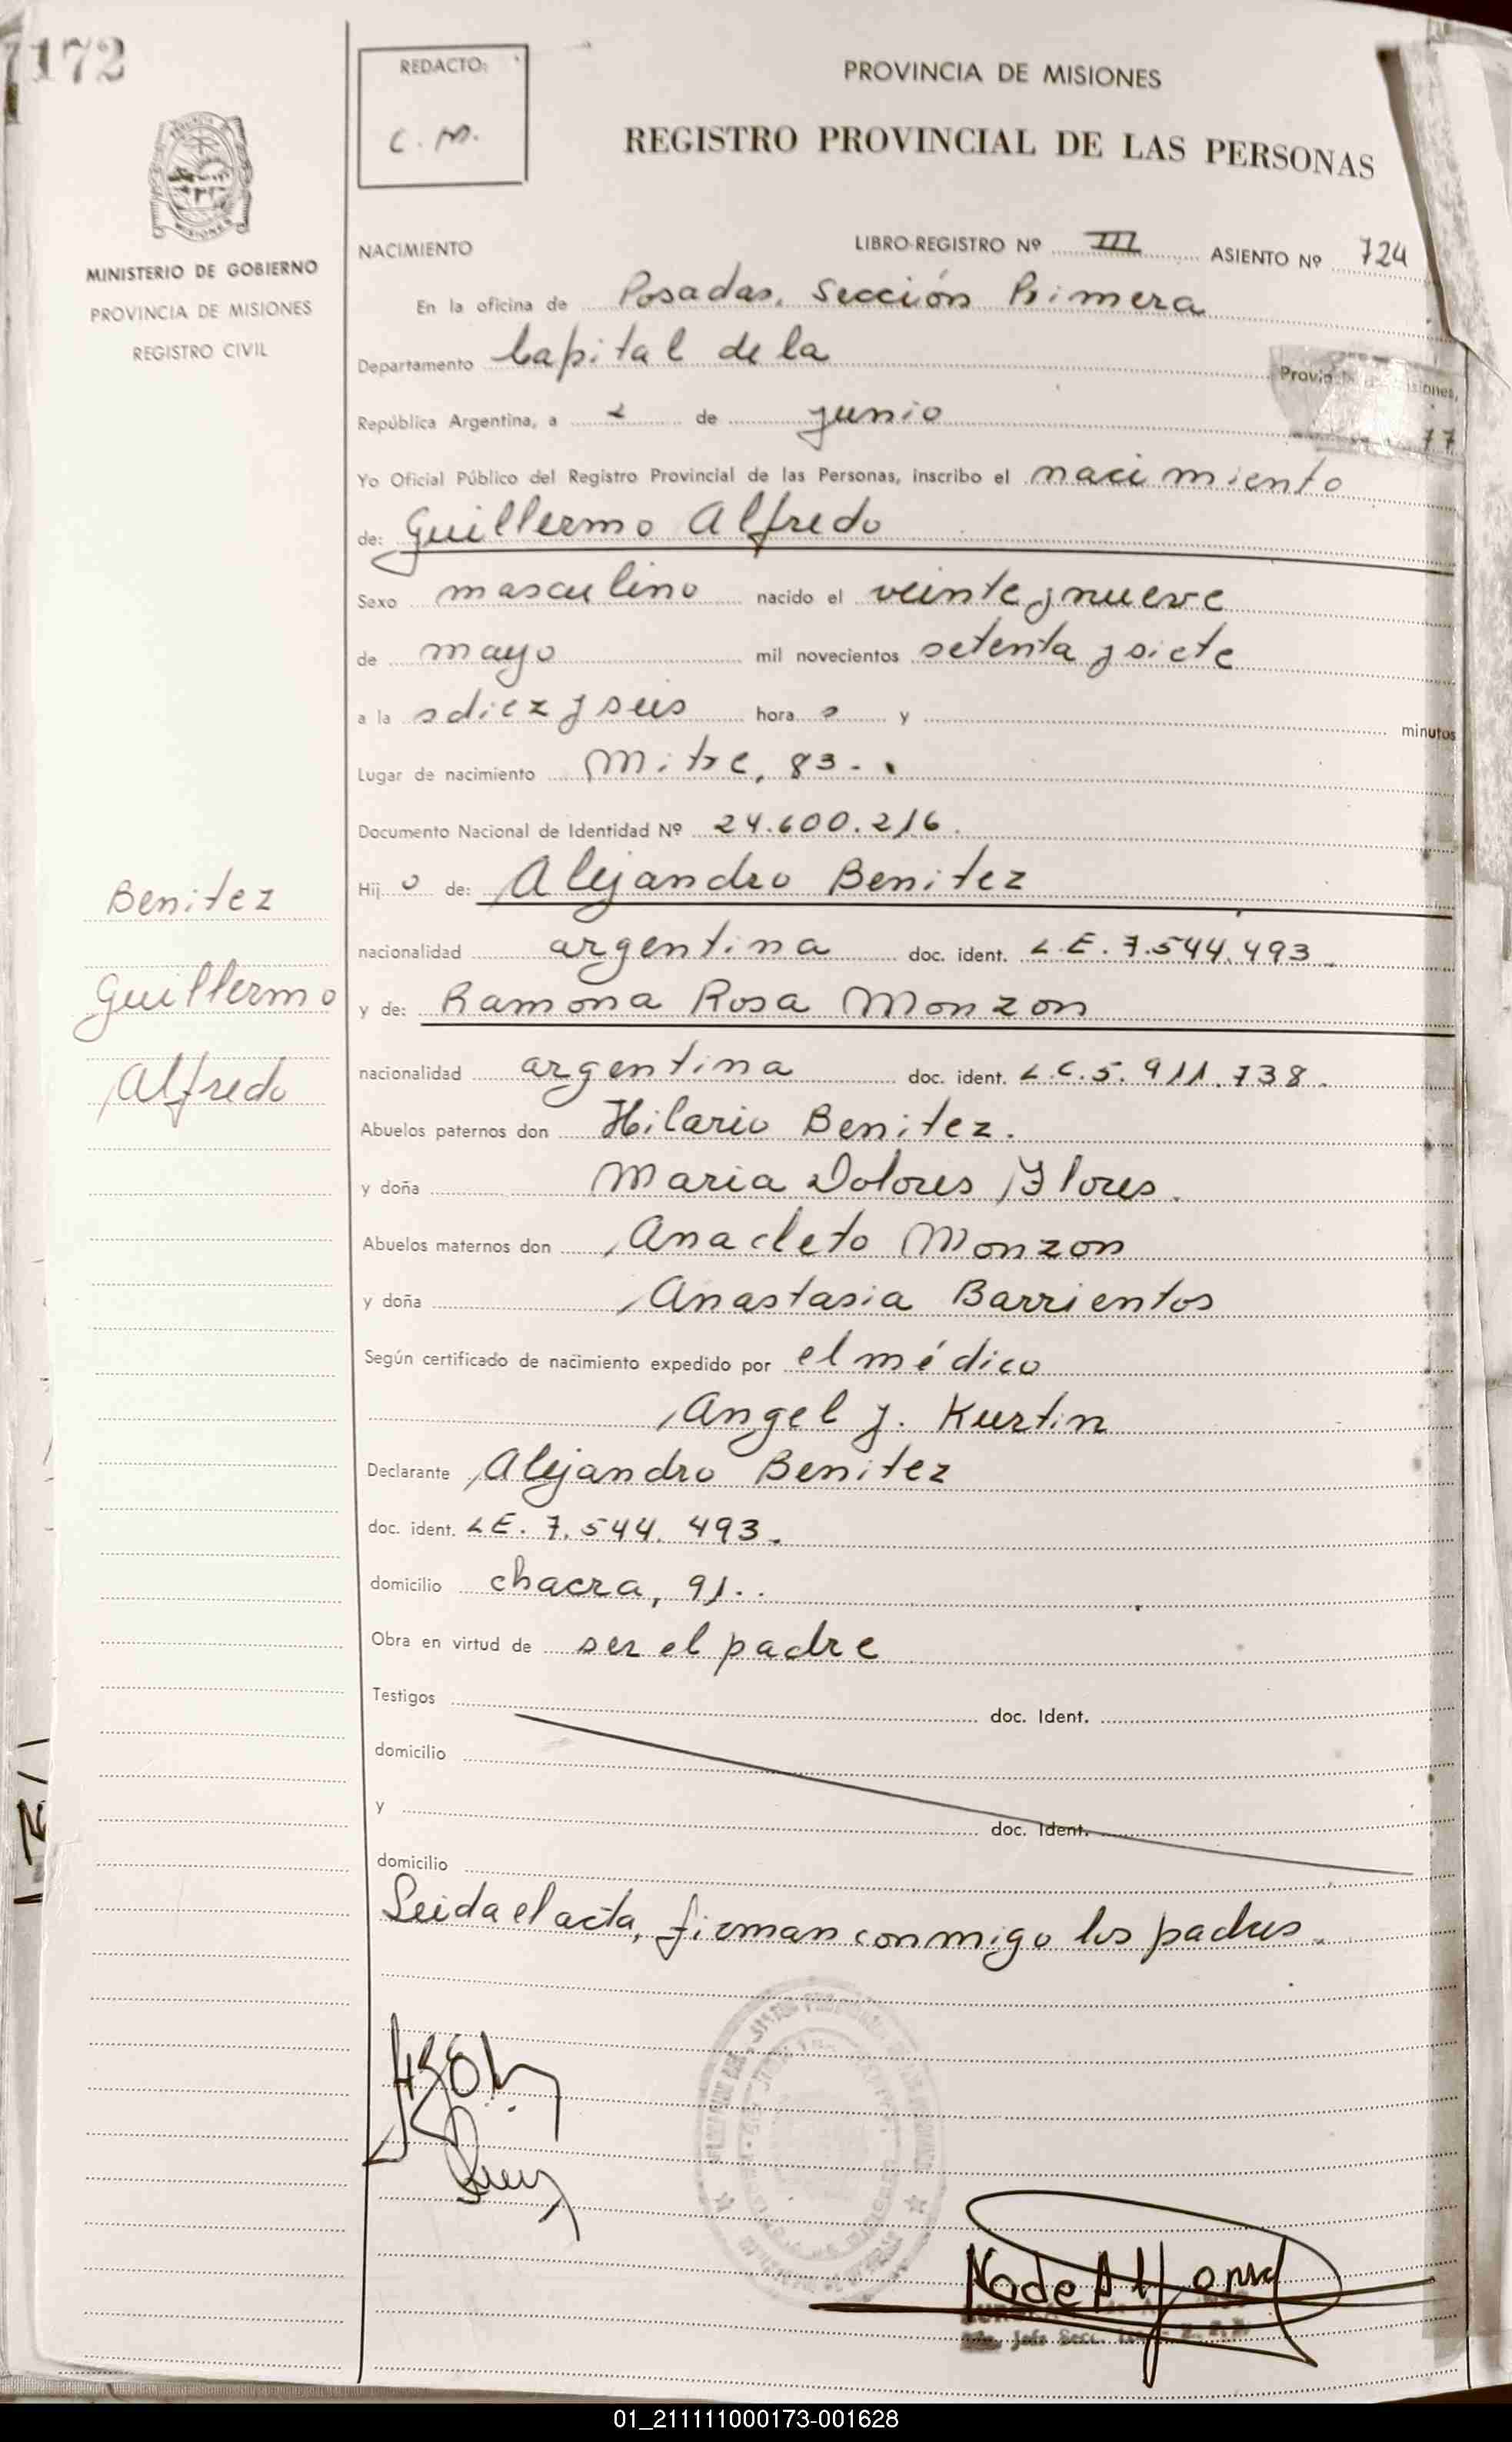 172
REDACTO:
C. M.
PROVINCIA DE MISIONES
REGISTRO PROVINCIAL DE LAS PERSONAS
MISIONES
MINISTERIO DE GOBIERNO
PROVINCIA DE MISIONES
REGISTRO CIVIL
NACIMIENTO
LIBRO-REGISTRO Nº III ASIENTO Nº 724
En la oficina de Posadas, Sección Primera
Departamento Capital de la Provincia de Misiones,
República Argentina, a 2 de junio 77
Yo Oficial Público del Registro Provincial de las Personas, inscribo el nacimiento
de: Guillermo Alfredo
Sexo masculino nacido el veinte y nueve
de mayo mil novecientos setenta y siete
a la s diez y seis hora s y minutos
Lugar de nacimiento Mitre, 83.
Documento Nacional de Identidad Nº 24.600.216.
Hij o de: Alejandro Benitez
nacionalidad argentina doc. ident. L.E. 7.544.493.
y de: Ramona Rosa Monzon
nacionalidad argentina doc. ident. L.C. 5.911.738.
Benitez
Guillermo
Alfredo
Abuelos paternos don Hilario Benitez.
y doña Maria Dolores Flores.
Abuelos maternos don Anacleto Monzon
y doña Anastasia Barrientos
Según certificado de nacimiento expedido por el médico
Angel J. Kurtin
Declarante Alejandro Benitez
doc. ident. LE. 7.544.493.
domicilio chacra, 91..
Obra en virtud de ser el padre
Testigos doc. Ident.
domicilio
y doc. Ident.
domicilio
Leida el acta, firman conmigo los padres.
N de Alfonso
Jefe Secc.
01_211111000173-001628